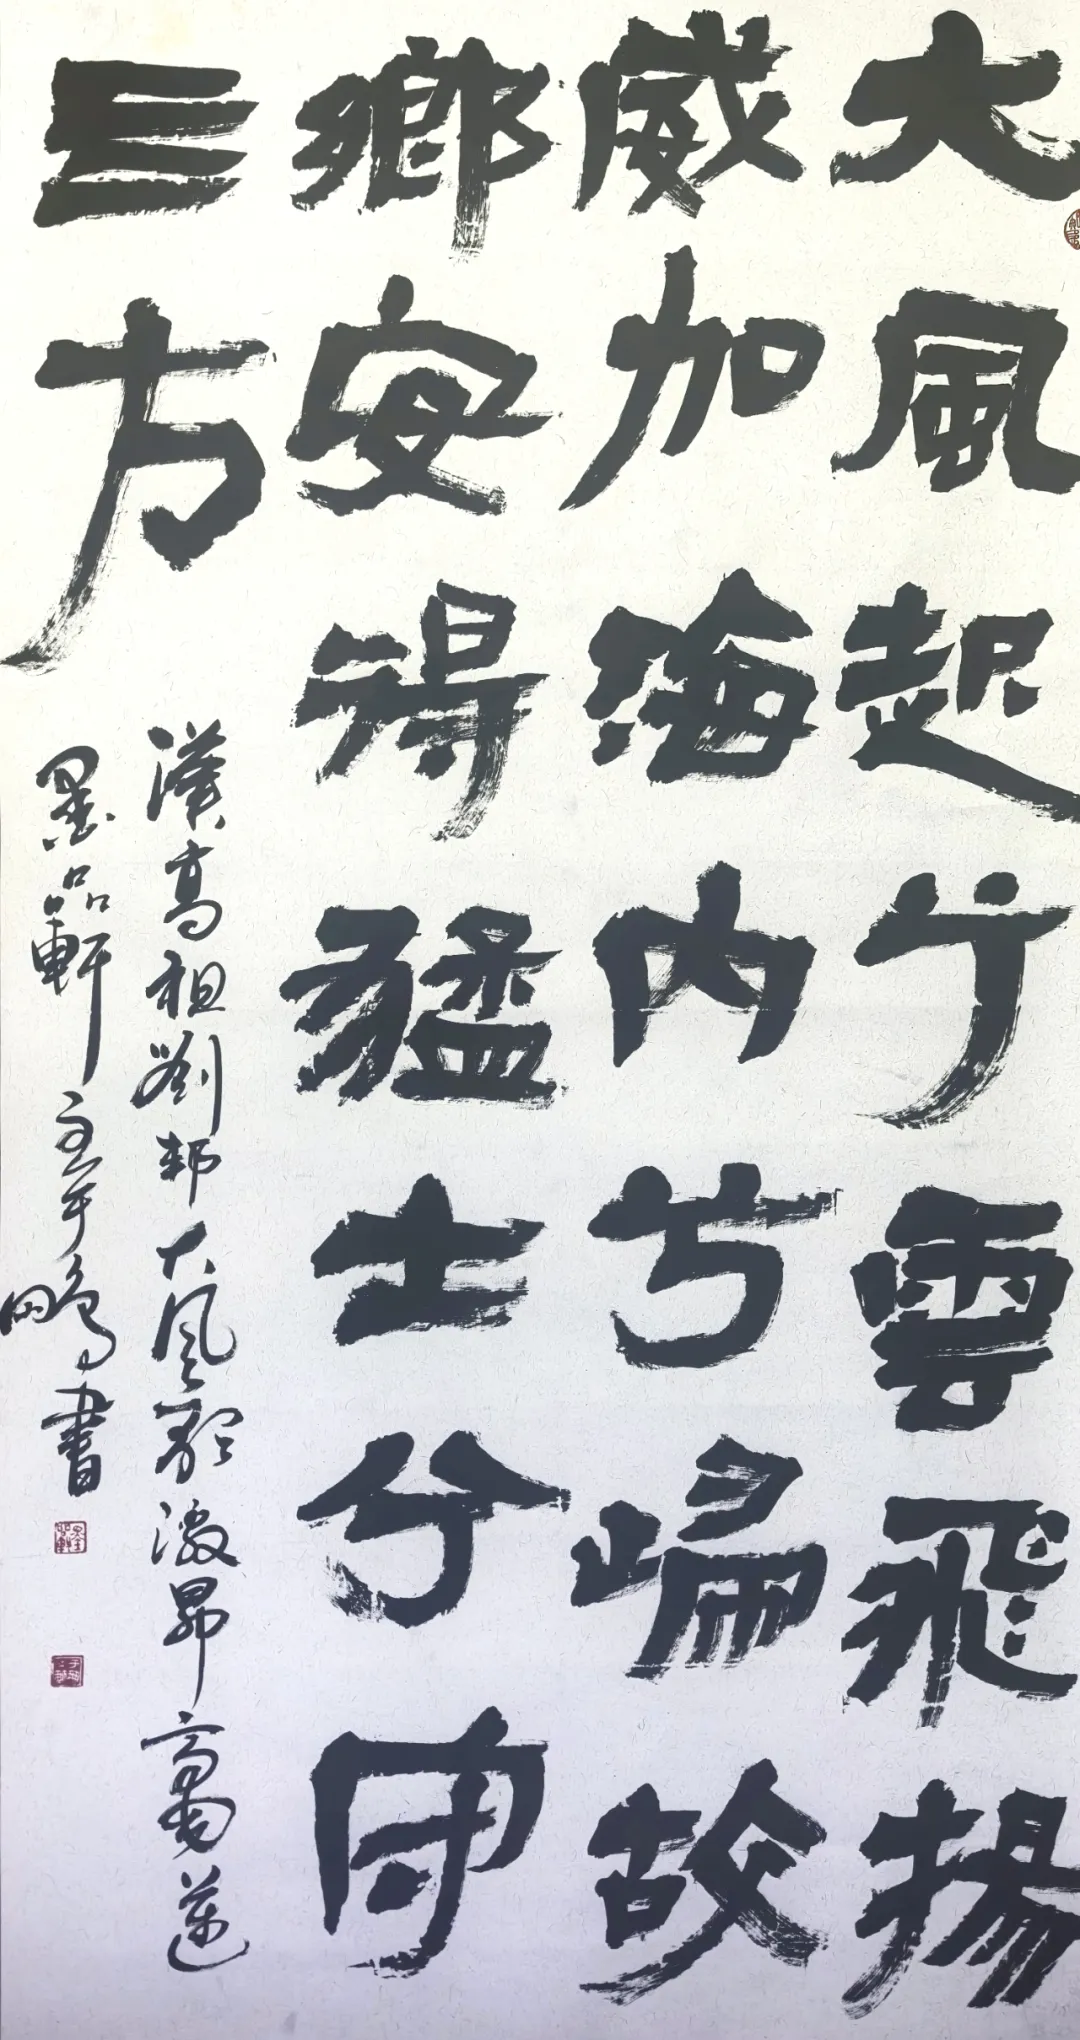 大風起兮雲飛揚
威加海内兮歸故
鄉安得猛士兮守
四方
漢高祖劉邦大風歌激昂高邁
墨品軒主于鵬書